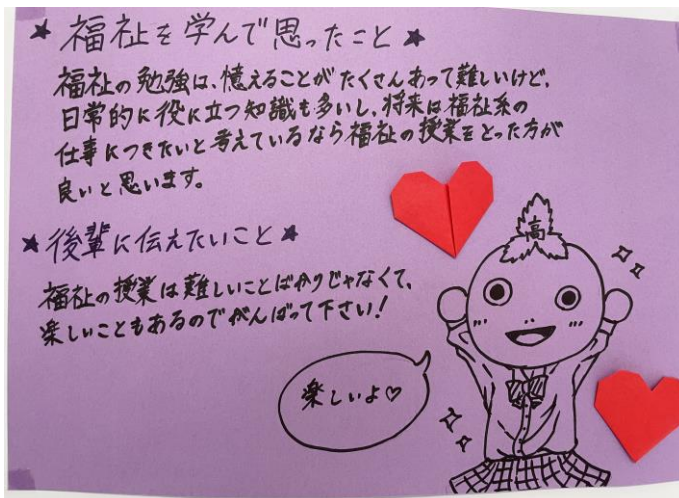 ★福祉を学んで思ったこと★
福祉の勉強は、憶えることがたくさんあって難しいけど、
日常的に役に立つ知識も多いし、将来は福祉系の
仕事につきたいと考えているなら福祉の授業をとった方が
良いと思います。
★後輩に伝えたいこと★
福祉の授業は難しいことばかりじゃなくて、
楽しいこともあるのでがんばって下さい!
高
楽しいよ♡